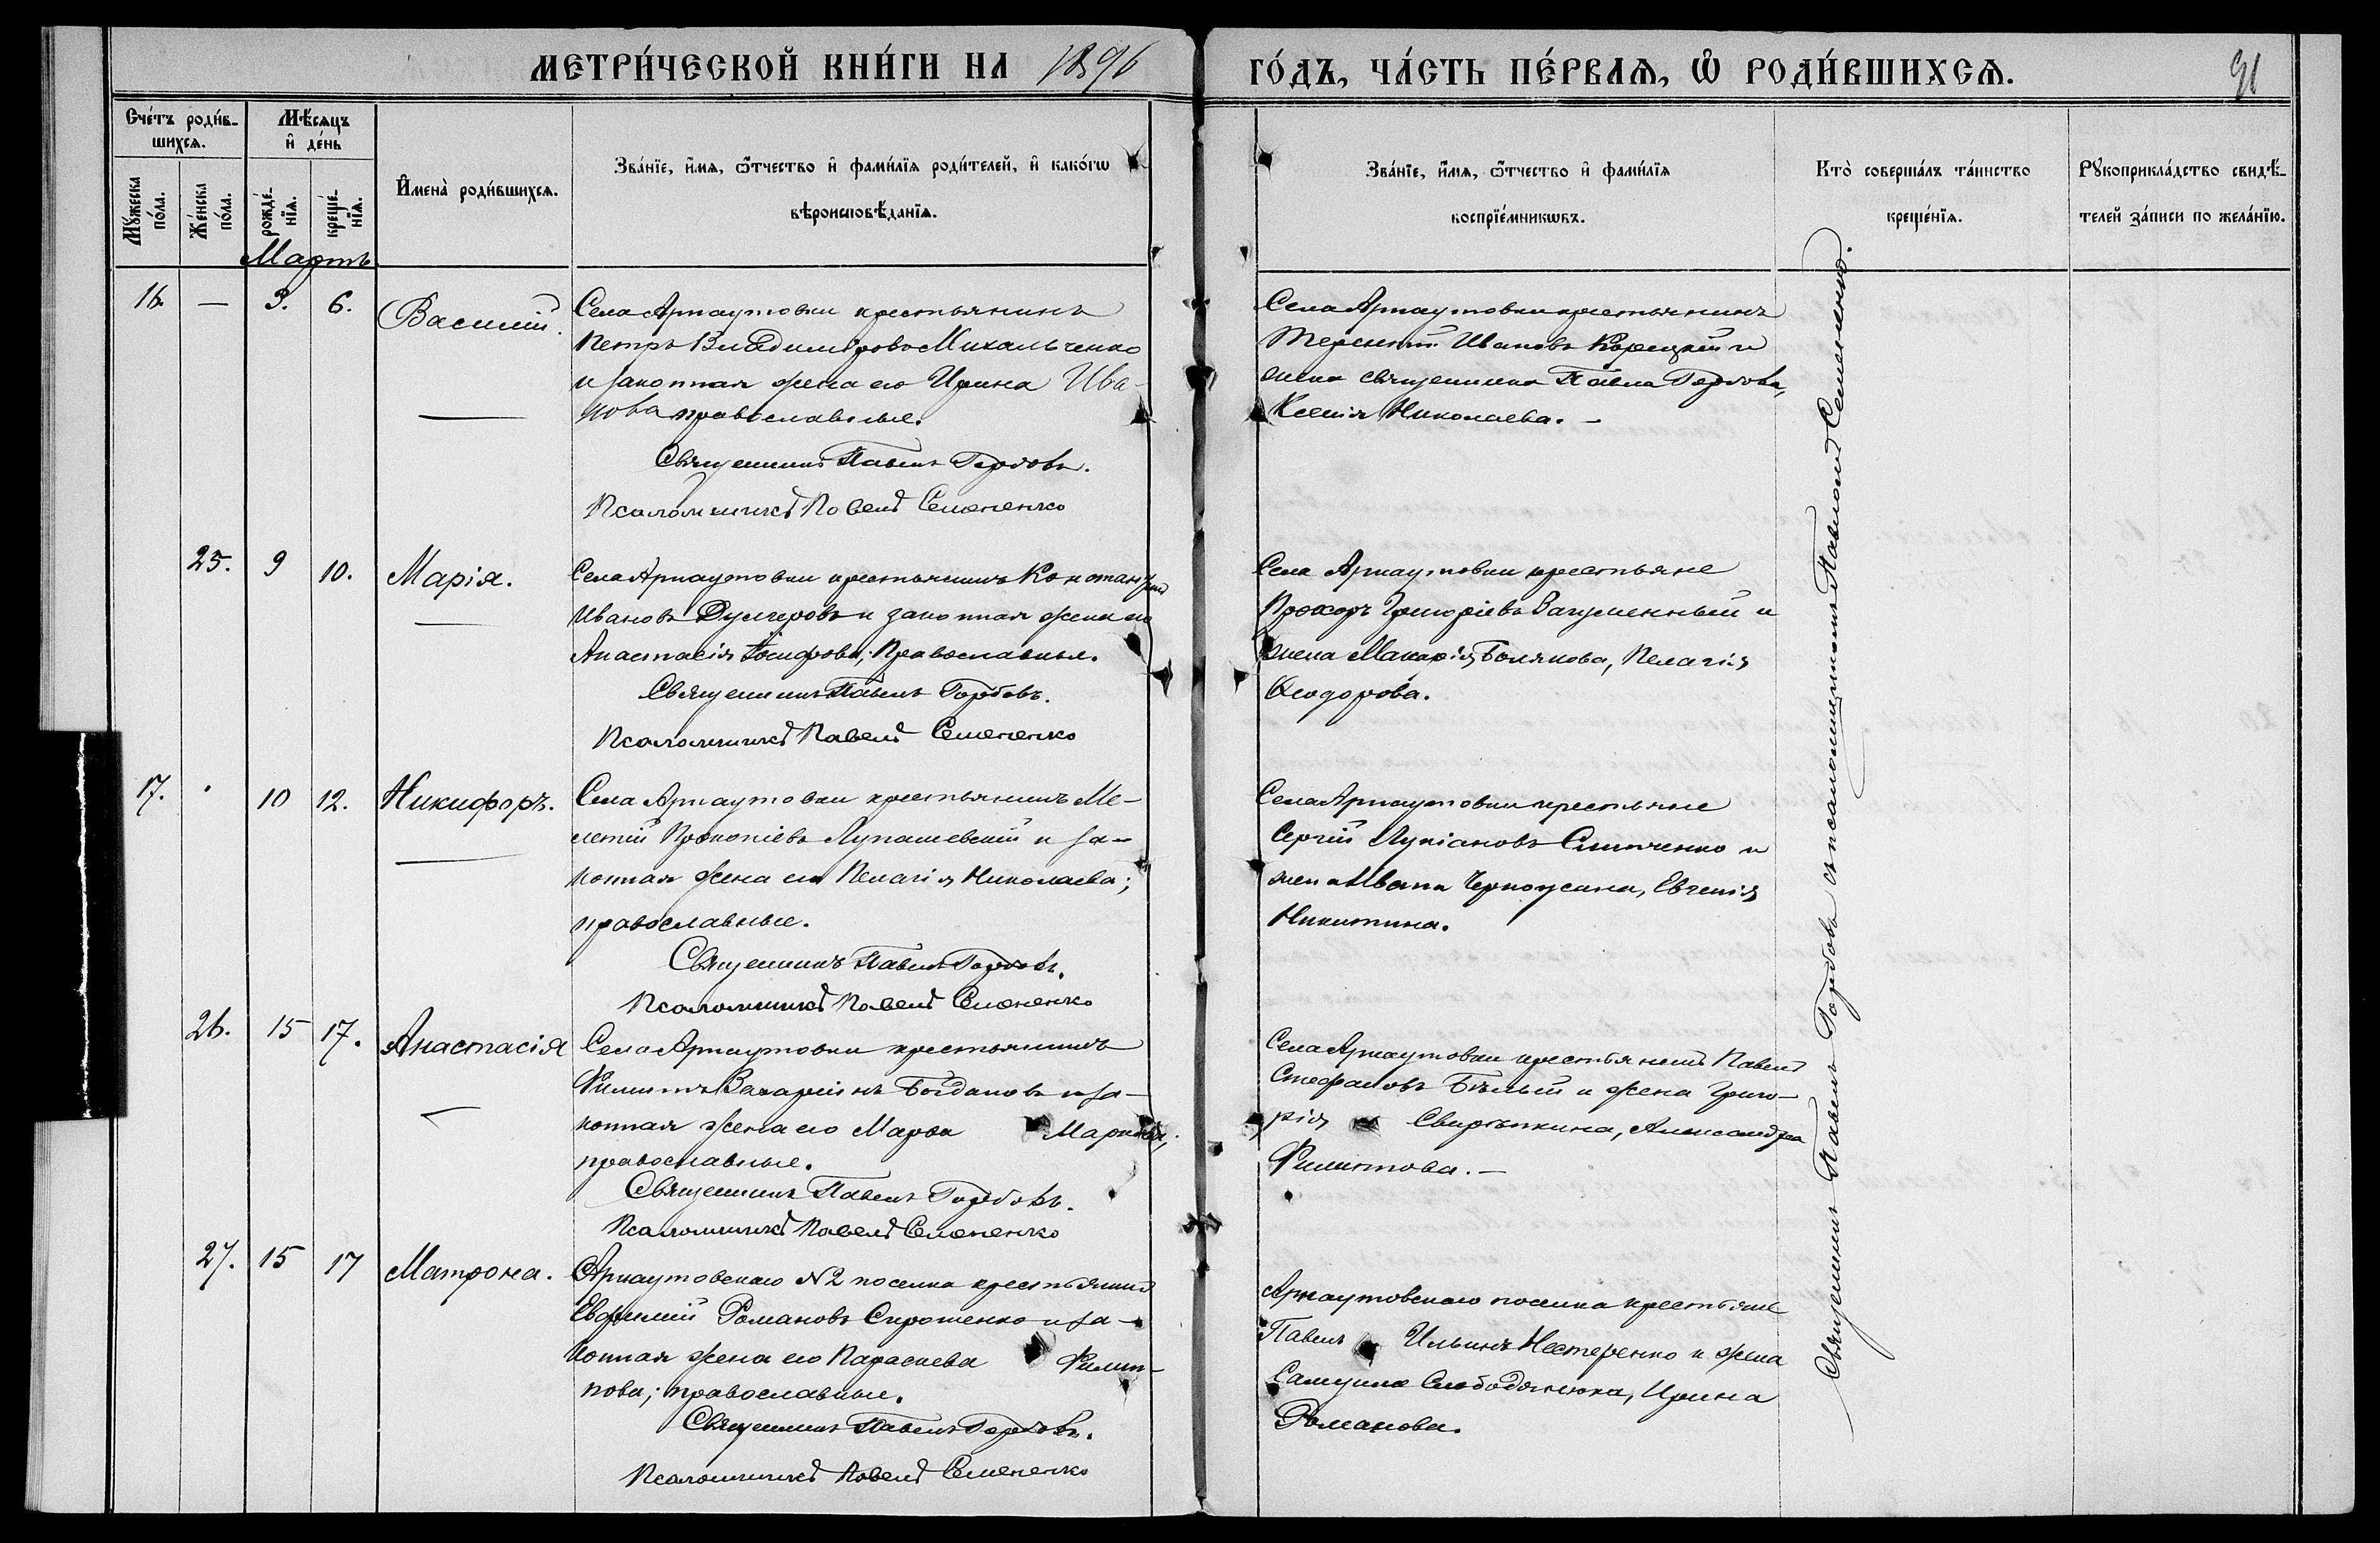 МЕТРИ́ЧЕСКОЙ КНИ́ГИ НА 1896 ГО́ДЪ, ЧА́СТЬ ПЕ́РВАѦ, Ѡ҆ РОДИ́ВШИХСѦ.
91
Сче́тъ роди́в-
шихсѧ.
Мѣ́сѧцъ
и҆ де́нь
Мꙋ́жеска
по́ла.
Же́нска
по́ла.
рожде́-
нїѧ.
креще́-
нїѧ.
И҆мена̀ роди́вшихсѧ.
Зва́нїе, и҆́мѧ, ѻ҆́тчество и҆ фами́лїѧ роди́телей, и҆ како́гѡ
вѣроисповѣ́данїѧ.
Зва́нїе, и҆́мѧ, ѻ҆́тчество и҆ фами́лїѧ
воспрїе́мникѡвъ.
Кто̀ соверша́лъ та́инство
креще́нїѧ.
Рꙋкоприкла́дство свидѣ́-
телей за́писи по жела́нїю.
Мартъ
16. — 3. 6. Василій.
Села Арнаутовки крестьянинъ
Петръ Владиміровъ Михальченко
и законная жена его Ирина Ива-
нова православные.
Священникъ Павелъ Горбовъ.
Псаломщикъ Павелъ Семененко
Села Арнаутовки крестьянинъ
Терентій Ивановъ Корецкій и
жена священника Павла Горбова,
Ксенія Николаева. —
25. 9 10. Марія.
Села Арнаутовки крестьянинъ Константинъ
Ивановъ Дулгеровъ и законная жена его
Анастасія Іосифова; Православные.
Священникъ Павелъ Горбовъ.
Псаломщикъ Павелъ Семененко
Села Арнаутовки крестьяне
Прохоръ Григоріевъ Загуменный и
жена Макарія Болякова, Пелагія
Ѳеодорова.
17. 10 12. Никифоръ.
Села Арнаутовки крестьянинъ Ме-
летій Прокопіевъ Лупашевскій и за-
конная жена его Пелагія Николаева;
православные.
Священникъ Павелъ Горбовъ.
Псаломщикъ Павелъ Семененко
Села Арнаутовки крестьяне
Сергій Лукіановъ Слипченко и
жена Ивана Черноусана, Евгенія
Никитина.
26. 15 17. Анастасія
Села Арнаутовки крестьянинъ
Филиппъ Захаріинъ Богдановъ и за-
конная жена его Марѳа Маркова;
православные.
Священникъ Павелъ Горбовъ.
Псаломщикъ Павелъ Семененко
Села Арнаутовки крестьянинъ Павелъ
Стефановъ Бѣлый и жена Григо-
рія Свирѣпкина, Александра
Филиппова. —
27. 15 17 Матрона.
Арнаутовскаго №2 поселка крестьянинъ
Евфимій Романовъ Сиротенко и за-
конная жена его Параскева Филип-
пова; православные.
Священникъ Павелъ Горбовъ.
Псаломщикъ Павелъ Семененко
Арнаутовскаго поселка крестьяне
Павелъ Ильинъ Нестеренко и жена
Самуила Слободянюка, Ирина
Романова.
Священникъ Павелъ Горбовъ съ псаломщикомъ Павломъ Семененко.